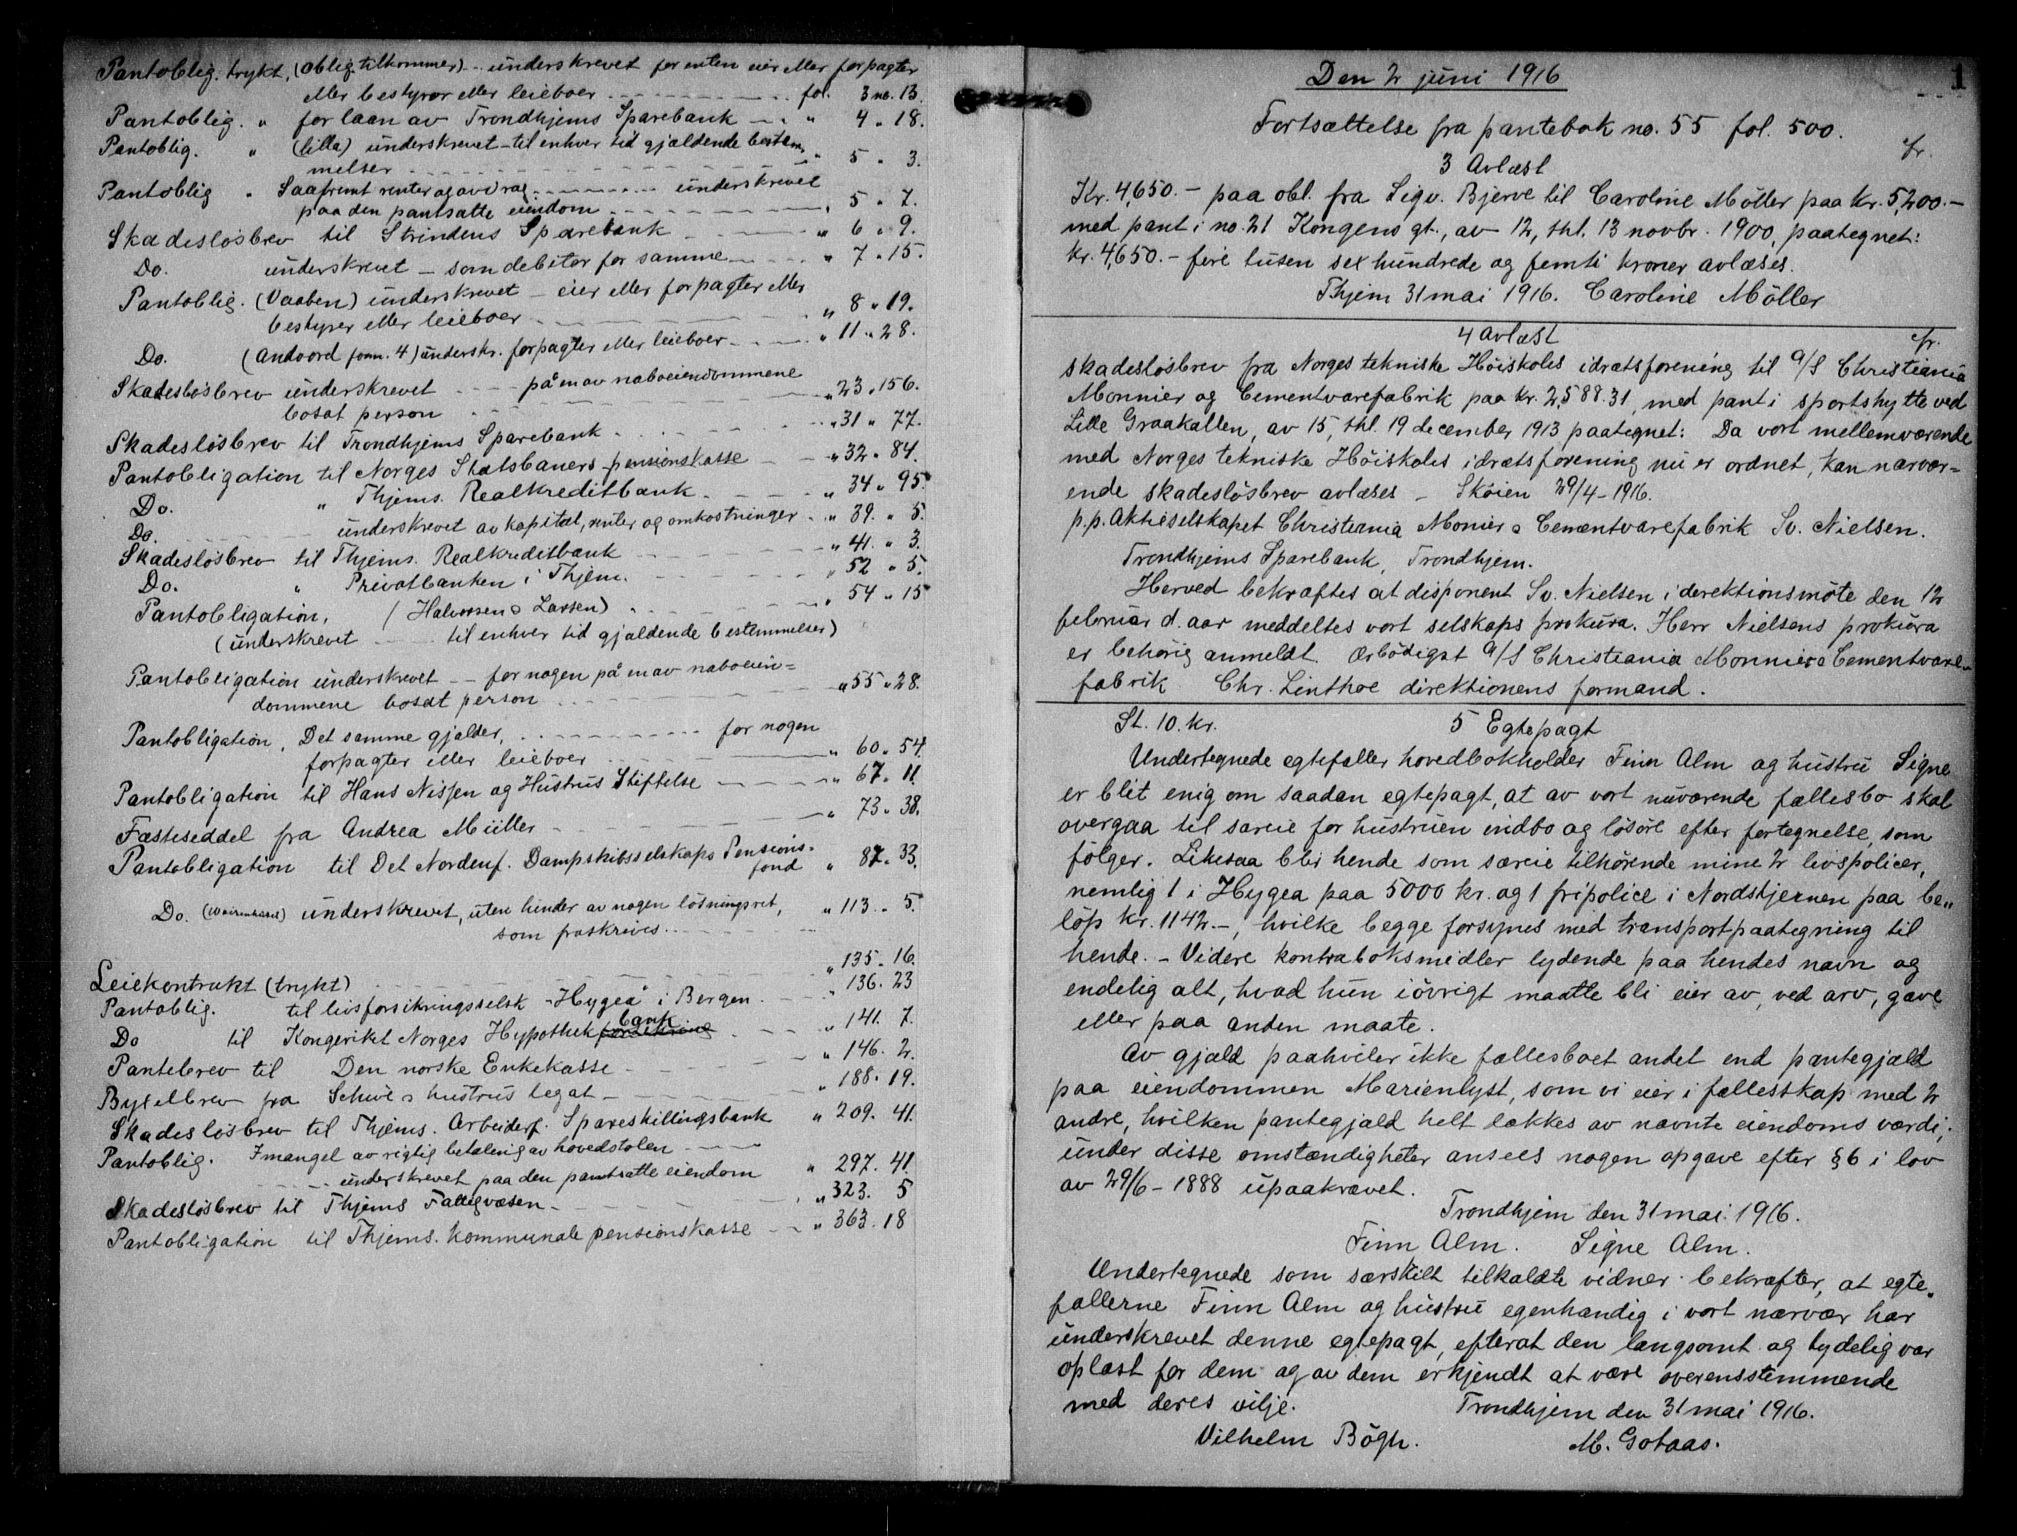 Pantoblig. trykt, (oblig. tilkommer) - underskrevet for enten eier eller forpagter
eller bestyrer eller leieboer - - - fol. 3 no. 13.
Pantoblig. " for laan av Trondhjems Sparebank - " 4 " 18.
Pantoblig. " (lilla) underskrevet - til enhver tid gjældende bestem
melser - - - " 5 " 3.
Pantoblig " Saafremt renter og avdrag - - - underskrevet
paa den pantsatte eiendom - - - " 5 " 7.
Skadesløsbrev til Strindens Sparebank - - - " 6 " 9.
Do. underskrevet - som debitor for samme - - - " 7 " 15.
Pantoblig. (Vaaben) underskrevet - eier eller forpagter eller
bestyrer eller leieboer - - - " 8 " 19.
Do. (Andvord form. 4) underskr. forpagter eller leieboer - - - " 11 " 28.
Skadesløsbrev underskrevet - - - på en av naboeiendommene
bosat person - - - " 23 " 156.
Skadesløsbrev til Trondhjems Sparebank - - - " 31 " 77.
Pantobligation til Norges Statsbaners pensionskasse - - " 32 " 84.
Do. " Thjems. Realkreditbank - - - " 34 " 95.
Do. underskrevet av kapital, renter og omkostninger - " 39. " 5.
Skadesløsbrev til Thjems. Realkreditbank - - - " 41. " 3.
Do. " Privatbanken i Thjem. - - - " 52 " 5.
Pantobligation, (Halvorsen & Larsen) - - - " 54 " 15
(underskrevet - - - til enhver tid gjældende bestemmelser)
Pantobligation underskrevet - - for nogen på en av naboeien=
dommene bosat person - - - " 55 " 28.
Pantobligation, Det samme gjælder, - - - for nogen
forpagter eller leieboer - - - " 60 " 54.
Pantobligation til Hans Nissen og Hustrus Stiftelse - - - " 67 " 11.
Fæsteseddel fra Andrea Müller - - - " 73 " 38.
Pantobligation til Det Nordenf. Dampskibsselskaps Pensions-
fond " 87 " 33.
Do. underskrevet, uten hinder av nogen løsningsret, " 113 " 5.
som foreskrives - - -
Leiekontrakt (trykt) - - - " 135 " 16.
Pantoblig. til livsforsikringsselsk "Hygea" i Bergen. - - " 136. 23
Do til Kongeriket Norges Hypothekbank - - " 141. 7.
Pantebrev til Den norske Enkekasse - - - " 146. 2.
Bygselbrev fra Schive & hustrus legat - - - " 188. 19.
Skadesløsbrev til Thjems. Arbeiderf. Spareskillingsbank " 209. 41.
Pantoblig. I mangel av rigtig betaling av hovedstolen - - -
- - - underskrevet paa den pantsatte eiendom " 297. 41.
Skadesløsbrev til Thjems Fattigvæsen - - - " 323. 5
Pantobligation til Thjems. kommunale pensionskasse - - " 363. 18
1
Den 2 juni 1916
Fortsættelse fra pantebok no. 55 fol. 500.
3 Avlæst
Kr. 4,650.- paa obl. fra Sigv. Bjerve til Caroline Möller paa kr. 5,200.-
med pant i no. 21 Kongens gt., av 12, thl. 13 novbr. 1900, paategnet:
kr. 4,650.- fire tusen sex hundrede og femti kroner avlæses.
Thjem 31 mai 1916. Caroline Möller
4 Avlæst
skadesløsbrev fra Norges tekniske Höiskoles idrætsforening til A/S Christiania
Monnier og Cementvarefabrik paa kr. 2,588.31, med pant i sportshytte ved
Lille Graakallen, av 15, thl. 19 december 1913 paategnet: Da vort mellemværende
med Norges tekniske Höiskoles idrætsforening nu er ordnet, kan nærvær=
ende skadesløsbrev avlæses - Skøien 29/4-1916.
p.p. Aktieselskapet Christiania Monier & Cementvarefabrik Sv. Nielsen.
Trondhjems Sparebank, Trondhjem.
Herved bekræftes at disponent Sv. Nielsen i direktionsmöte den 12
februar d. aar meddeltes vort selskaps prokura. Herr Nielsens prokura
er behörig anmeldt. Ærbödigst A/S Christiania Monnier & Cementvare-
fabrik Chr. Linthoe direktionens formand.
St. 10. kr. 5 Egtepagt
Undertegnede egtefæller hovedbokholder Finn Alm og hustru Signe
er blit enig om saadan egtepagt, at av vort nuværende fællesbo skal
overgaa til særeie for hustruen indbo og løsøre efter fortegnelse, som
følger. Likesaa blir hende som særeie tilhørende mine 2 livspolicer,
nemlig 1 i Hygea paa 5000 kr. og 1 fripolice i Nordstjernen paa be"
löp kr. 1142.-, hvilke begge forsynes med transportpaategning til
hende. - Videre kontraboksmidler lydende paa hendes navn og
endelig alt, hvad hun iøvrigt maatte bli eier av, ved arv, gave
eller paa anden maate.
Av gjæld paahviler ikke fællesboet andet end pantegjæld
paa eiendommen Marienlyst, som vi eier i fællesskap med 2
andre, hvilken pantegjæld helt dækkes av nævnte eiendoms værdi;
under disse omstændigheter ansees nogen opgave efter §6 i lov
av 29/6-1888 upaakrævet.
Trondhjem den 31 mai 1916.
Finn Alm. Signe Alm.
Undertegnede som særskilt tilkaldte vidner bekræfter, at egte"
fællerne Finn Alm og hustru egenhændig i vort nærvær har
underskrevet denne egtepagt, efterat den langsomt og tydelig var
oplæst for dem og av dem erkjendt at være overensstemmende
med deres vilje. Trondhjem den 31 mai 1916.
Vilhelm Bögh. M. Gotaas.